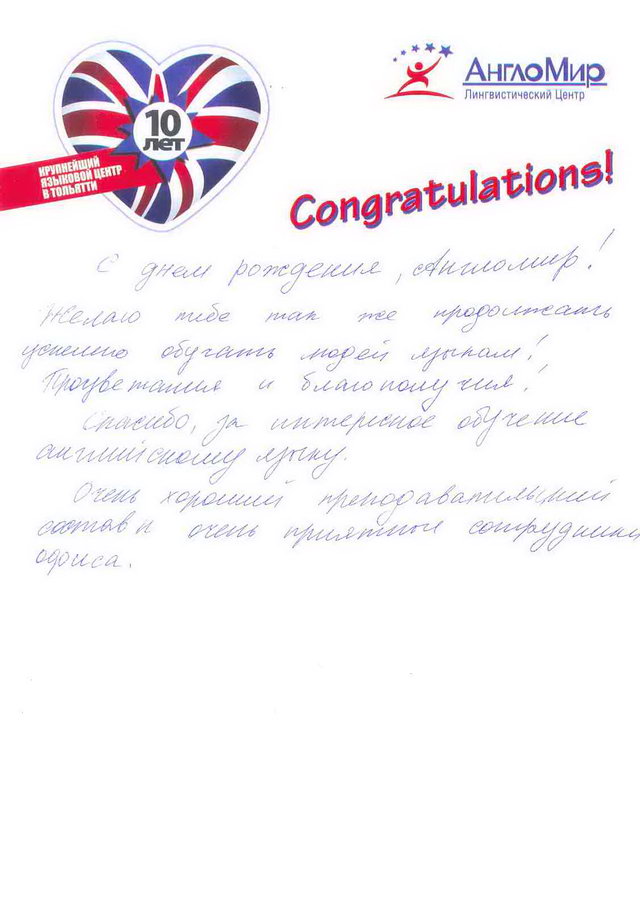 10
ЛЕТ
КРУПНЕЙШИЙ
ЯЗЫКОВОЙ ЦЕНТР
В ТОЛЬЯТТИ
АнглоМир
Лингвистический Центр
Congratulations!
С днем рождения, Англомир!
Желаю тебе так же продолжать
успешно обучать людей языкам!
Процветания и благополучия!
Спасибо, за интересное обучение
английскому языку.
Очень хороший преподавательский
состав и очень приятные сотрудники
офиса.